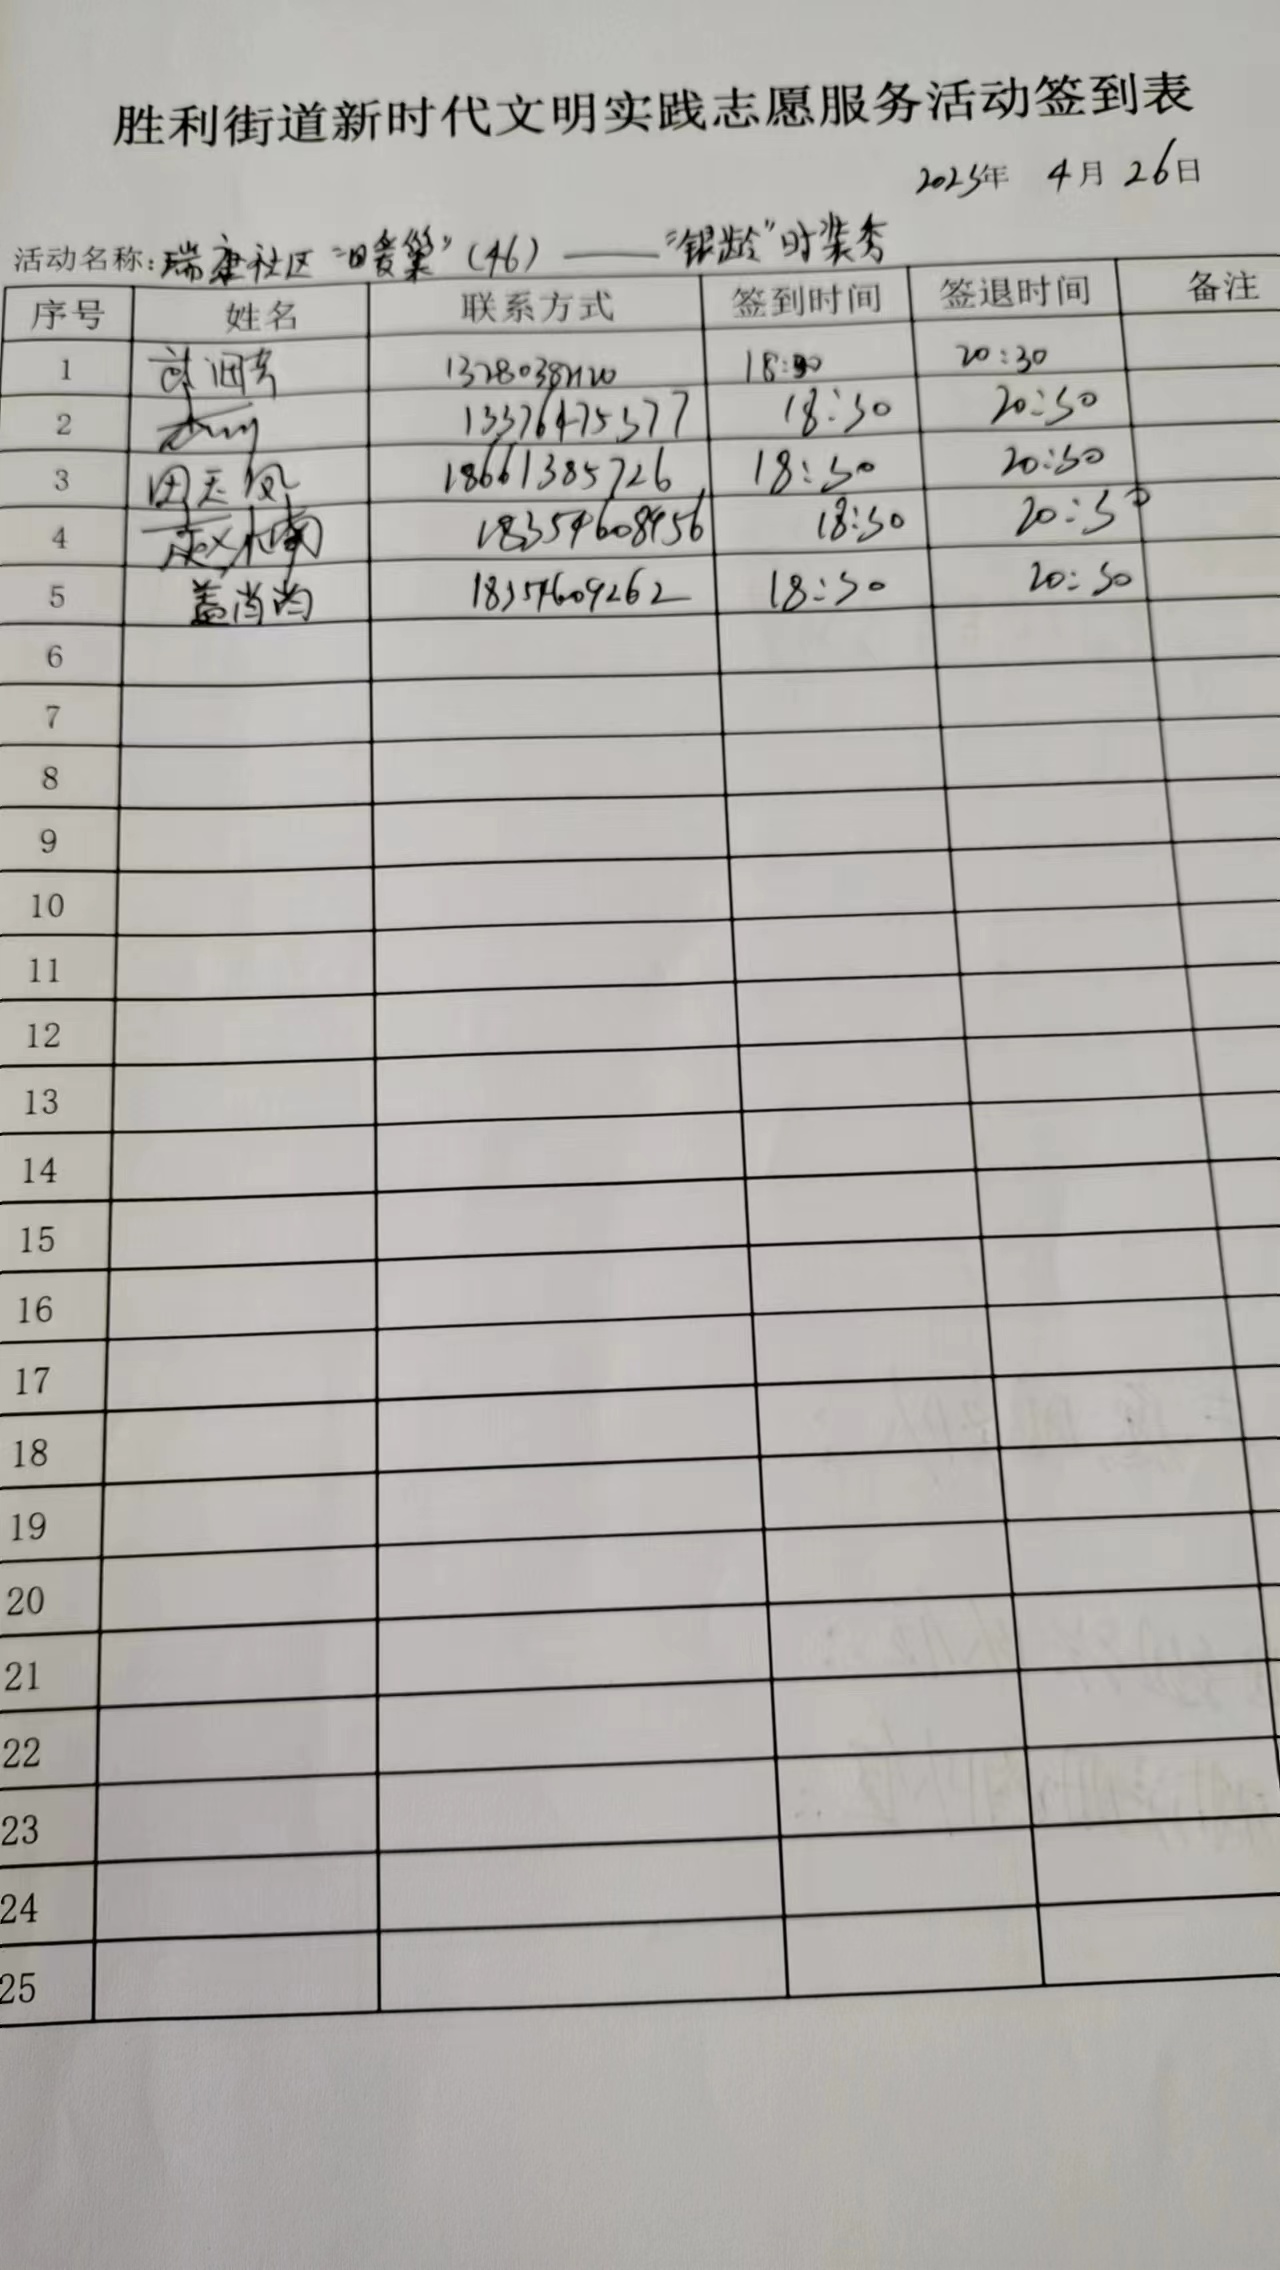 胜利街道新时代文明实践志愿服务活动签到表
2023年 4月 26日
活动名称:瑞康社区“暖巢”(46)——“银龄”时装秀
序号 姓名 联系方式 签到时间 签退时间 备注
1 18:30 20:30
2 13376475377 18:30 20:30
3 田玉凤 18661385726 18:30 20:30
4 赵小南 18354608956 18:30 20:30
5 盖肖肖 18354609262 18:30 20:30
6
7
8
9
10
11
12
13
14
15
16
17
18
19
20
21
22
23
24
25